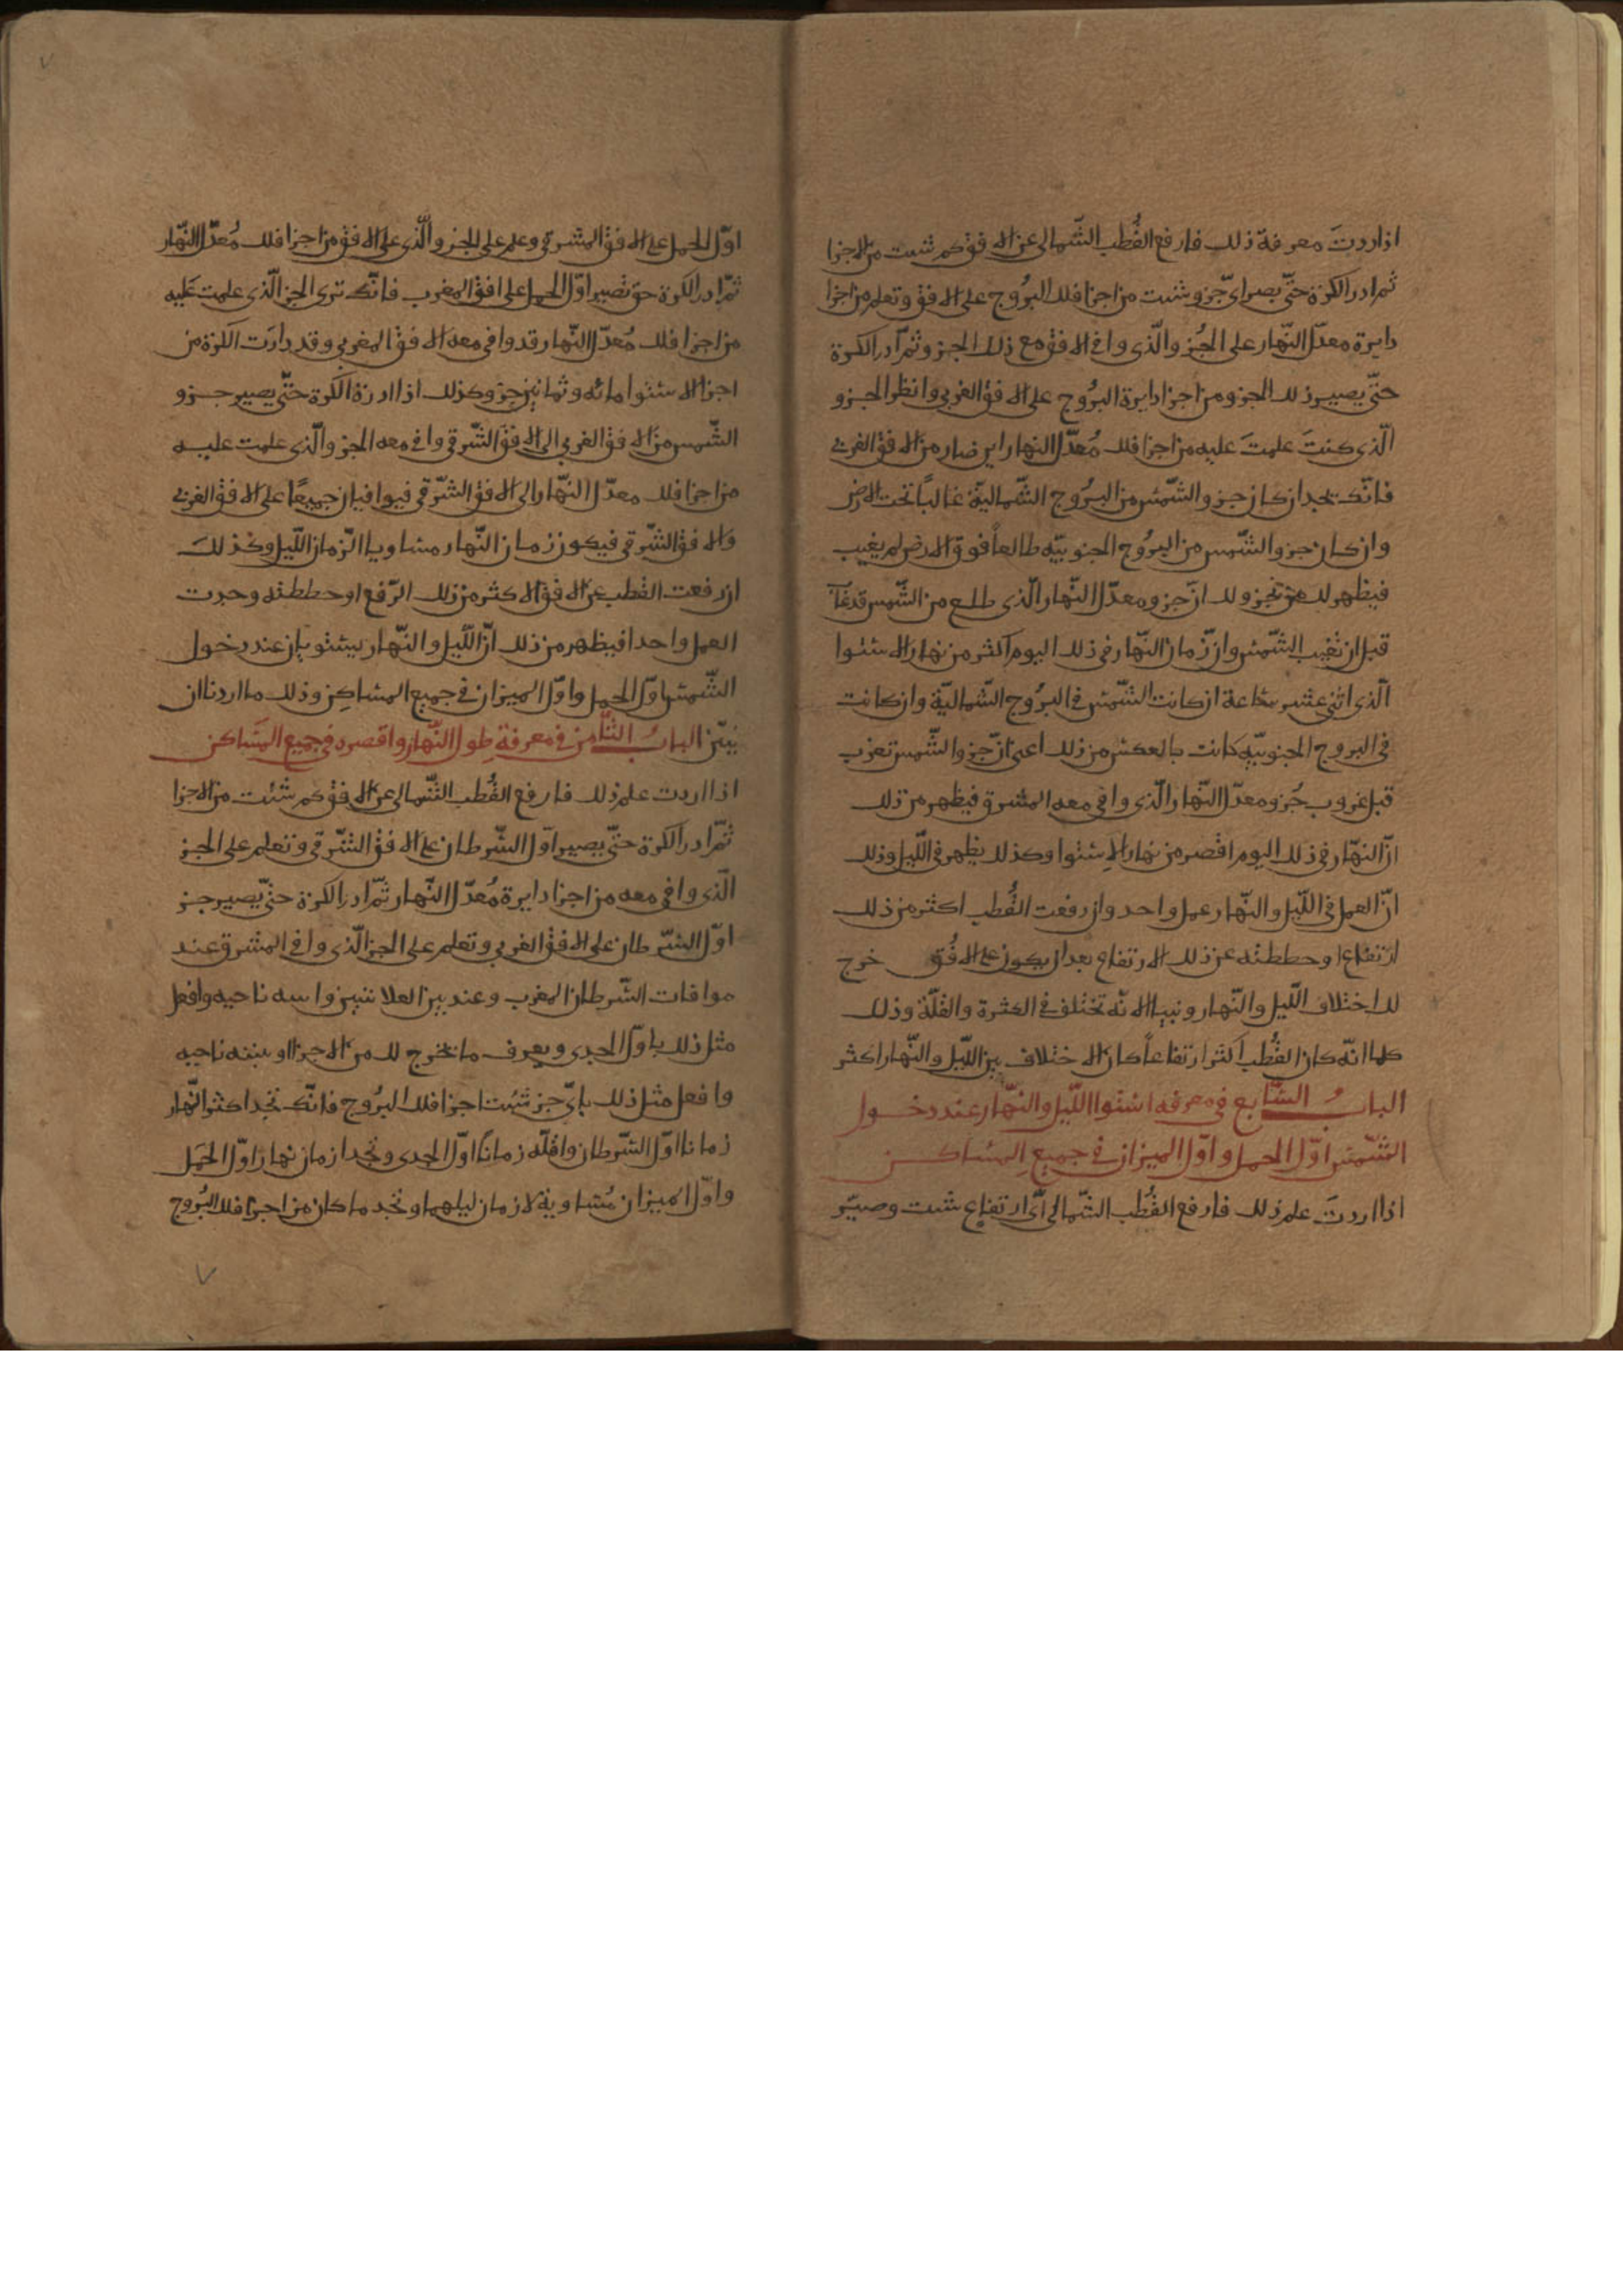 اذا اردتَ معرفة ذلك فارفع القُطب الشّمالي عن الافق كم شئت من الاجزا
ثم ادر الكرة حتّى يصير اىّ جزو شئت من اجزا فلك البرُوج على الافق وتعلم من اجزا
دايرة معدّل النّهار على الجُزو الّذى وافى الافق مع ذلك الجزو ثمّ ادر الكرة
حتّى يصير ذلك الجزو من اجزا دايرة البرُوج على الافق الغربي وانظر الجزو
الّذى كنتَ علمتَ عليه من اجزا فلك مُعدّل النهار اين صار من الافق الغربى
فانّك تجد ان كان جزو الشّمس من البرُوج الشّماليّة غالباً تحت الارض
وان كان جزو الشّمس من البرُوج الجنوبيّه طالعاً فوق الارض لم يغيب
فيظهر لك من ذلك انّ جزو معدّل النّهار الّذى طلع من الشّمس قد غاب
قبل ان تغيب الشّمس وان زمان النّهار فى ذلك اليوم اكثر من نهار الاستوا
الّذى اثنى عشر ساعة ان كانت الشّمس فى البرُوج الشّماليّة وان كانت
فى البروج الجنوبيّه كانت بالعكس من ذلك اعنى انّ جزو الشّمس تغرب
قبل غروب جُزو معدّل النّهار الّذى وافى معه المشرق فيظهر من ذلك
انّ النهّار فى ذلك اليوم اقصر من نهار الاستوا وكذلك يظهر فى اللّيل وذلك
انّ العمل فى اللّيل والنّهار عمل واحد وان رفعت القُطب اكثر من ذلك
ارتفاع او حططته عن ذلك الارتفاع بعد ان يكون على الافُق خرج
لك اختلاف اللّيل والنّهار ونبيا الا نّه تختلف فى الكثرة والقلّة وذلك
كلما انّه كان القُطب اكثر ارتفاعاً كان الاختلاف بين اللّيل والنّهار اكثر
البابُ السّابع فى معرفه استوا اللّيل والنّهار عند دخول
الشّمس اوّل الحمل واوّل الميزان فى جميع المساكن
اذا اردتَ علم ذلك فارفع القُطب الشّمالى اىّ ارتفاع شئت وصيّر
اوّل الحمل على الافق المشرقى وعلم على الجزو الّذى على الافق من اجزا فلك مُعدّل النّهار
ثمّ ادر الكرة حتى تصير اوّل الحمل على افق المغرب فانّك ترى الجز الّذى علمت عَليه
من اجزا فلك مُعدّل النّهار قد وافى معه الافق المغربى وقد دارَت الكرة من
اجزا الاستوا مائه وثمانين جزو وكذلك اذا ادرة الكرة حتّى يصير جزو
الشّمس من الافق الغربي الى الافق الشّرقى وافى معه الجزو الّذى علمت عليه
من اجزا فلك معدّل النّهار الى الافق الشّرقى فيوافيان جميعًا على الافق الغربى
والافق الشّرقى فيكون زمان النّهار مساويا لزمان اللّيل وكذلكَ
ان رفعت القطب عن الافق الاكثر من ذلك الرّفع او حططته وجدت
العمل واحدا فيظهر من ذلك انّ اللّيل والنّهار يستويان عند دخول
الشّمس اوّل الحمل واوّل الميزان فى جميع المساكن وذلك ما اردنا ان
نبيّن البابُ الثّامن فى معرفة طول النّهار واقصره فى جميع المَساكن
اذا اردت علم ذلك فارفع القُطب الشّمالى عن الافق كم شئت من الاجزا
ثمّ ادر الكرة حتّى يصير اوّل السّرطان على الافق الشّرقى وتعلم على الجز
الّذى وافى معه من اجزا دايرة مُعدّل النّهار ثمّ ادر الكرة حتىّ يصير جز
اوّل السّرطان على الافق الغربى وتعلم على الجز الّذى وافى المشرق عند
موافات السّرطان المغرب وعند بين العلامتين واسه ناحيه وافعل
مثل ذلك باوّل الجدى ويعرف ما يخرج لك من الاجزا او بينه ناحيه
وافعل مثل ذلك باىّ جز شئت اجزا فلك البرُوج فانّك تجد اكثر النّهار
زمانا اوّل السّرطان واقلّه زماناً اوّل الجدى وتجد ازمان نهار اوّل الحَمل
واوّل الميزان مُتساوية لازمان ليلهما وتجد ما كان من اجزا فلك البُروج